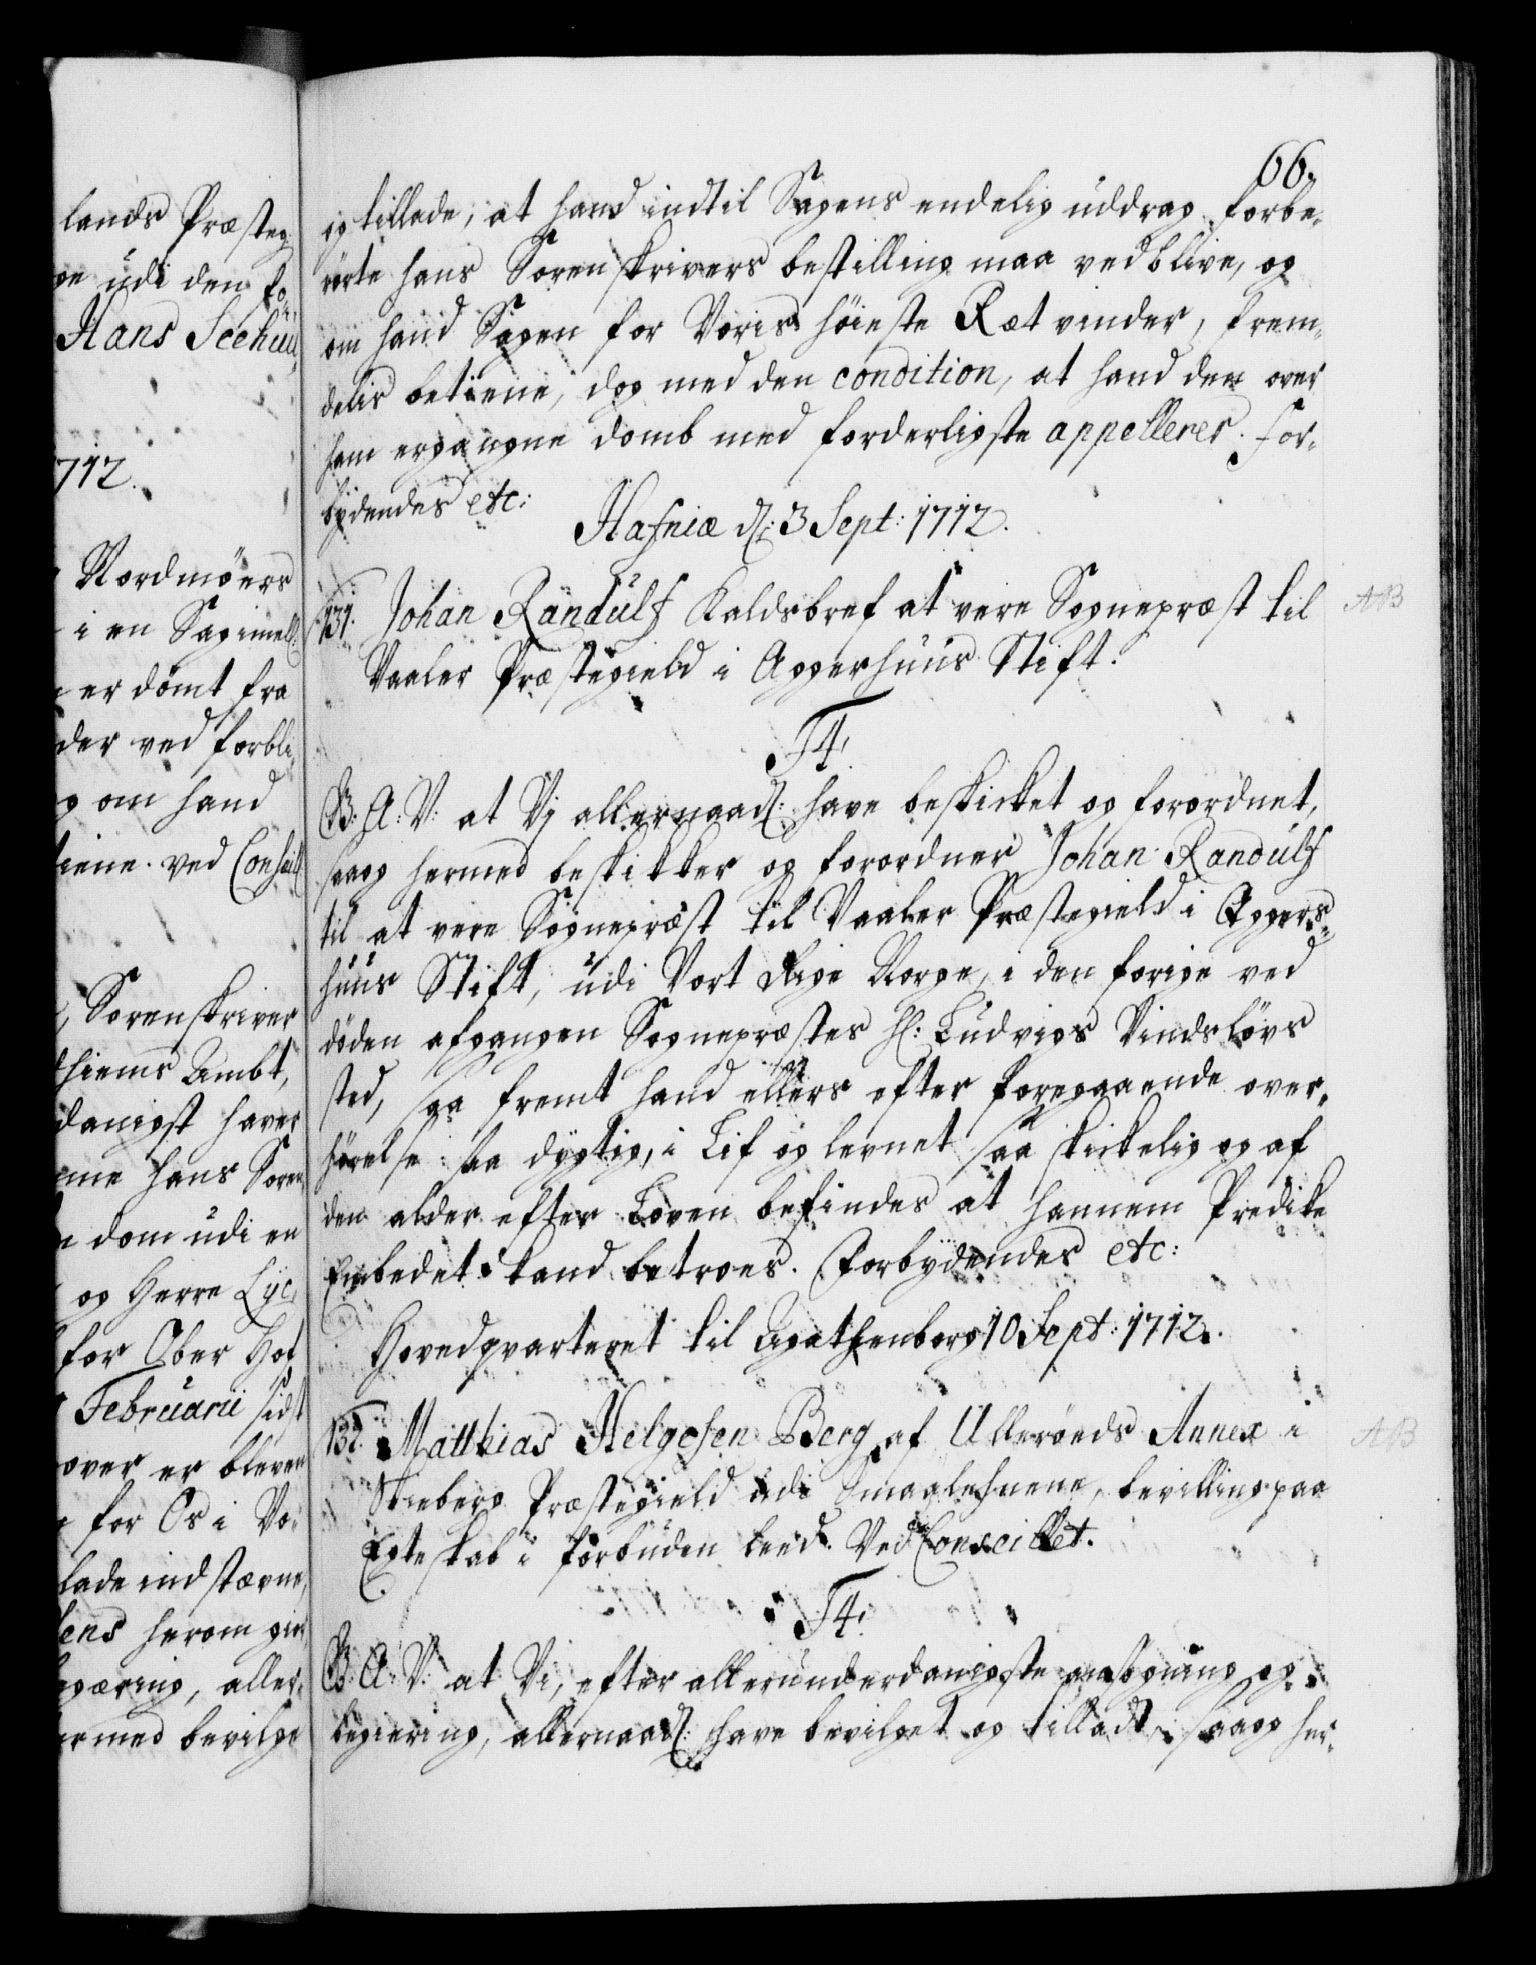 lands Præsteg
ge udi den fo¬
Hans Seehuu¬
1712.
Nordmöers
i en Sag imell:
er dömt fra
der ved forbli¬
g om hand
tiene. ved Conseill
, Sorenskriver
dhiems Ambt,
danigst haver
me hans Soren
dom udi en
og Herre Lyc¬
for Ober Hof
Februarii sidst
over er bleven
for Os i Vo¬
lade indstævne,
sens herom giv
gæring, aller¬
ermed bevilge
66.
og tillade, at hand indtil Sagens endelig uddrag forbe¬
rörte hans Sorenskrivers bestilling maa vedblive, og
om hand Sagen for Voris höieste Ræt vinder, frem¬
delis betiene, dog med den condition, at hand den over
ham ergangne domb med forderligste appellerer. For¬
bydendes etc:
Hafniæ d: 3 Sept: 1712.
131. Johan Randulf Kaldsbref at vere Sognepræst til
Vaaler Præstegield i Aggerhuus Stift.
F4.
G: A: V: at Vj allernaad: have beskicket og forordnet,
saa og hermed beskikker og forordner Johan Randulf
til at vere Sognepræst til Vaaler Præstegield i Aggers¬
huus Stift, udi Vort Rige Norge, i den forige ved
döden afgangen Sognepræstes Hr: Ludvigs Vindslövs
sted, saa fremt hand ellers efter foregaaende over¬
hörelse saa dygtig, i Lif og levnet saa skickelig og af
den alder efter Loven befindes at hannem Predike
Embedet kand betroes. Forbydendes etc:
Hovedqvarteret til Agathenborg 10 Sept: 1712.
132. Matthias Helgesen Berg af Ulleröeds Annex i
Skieberg Præstegield udi Smaalehnene, bevilling paa
Egteskab i forbuden leed. Ved Conseillet.
F4.
G: A: V: at Vi, efter allerunderdanigste ansögning og
begiering, allernaad: have bevilget og tilladt, saa og her¬
AB
AB